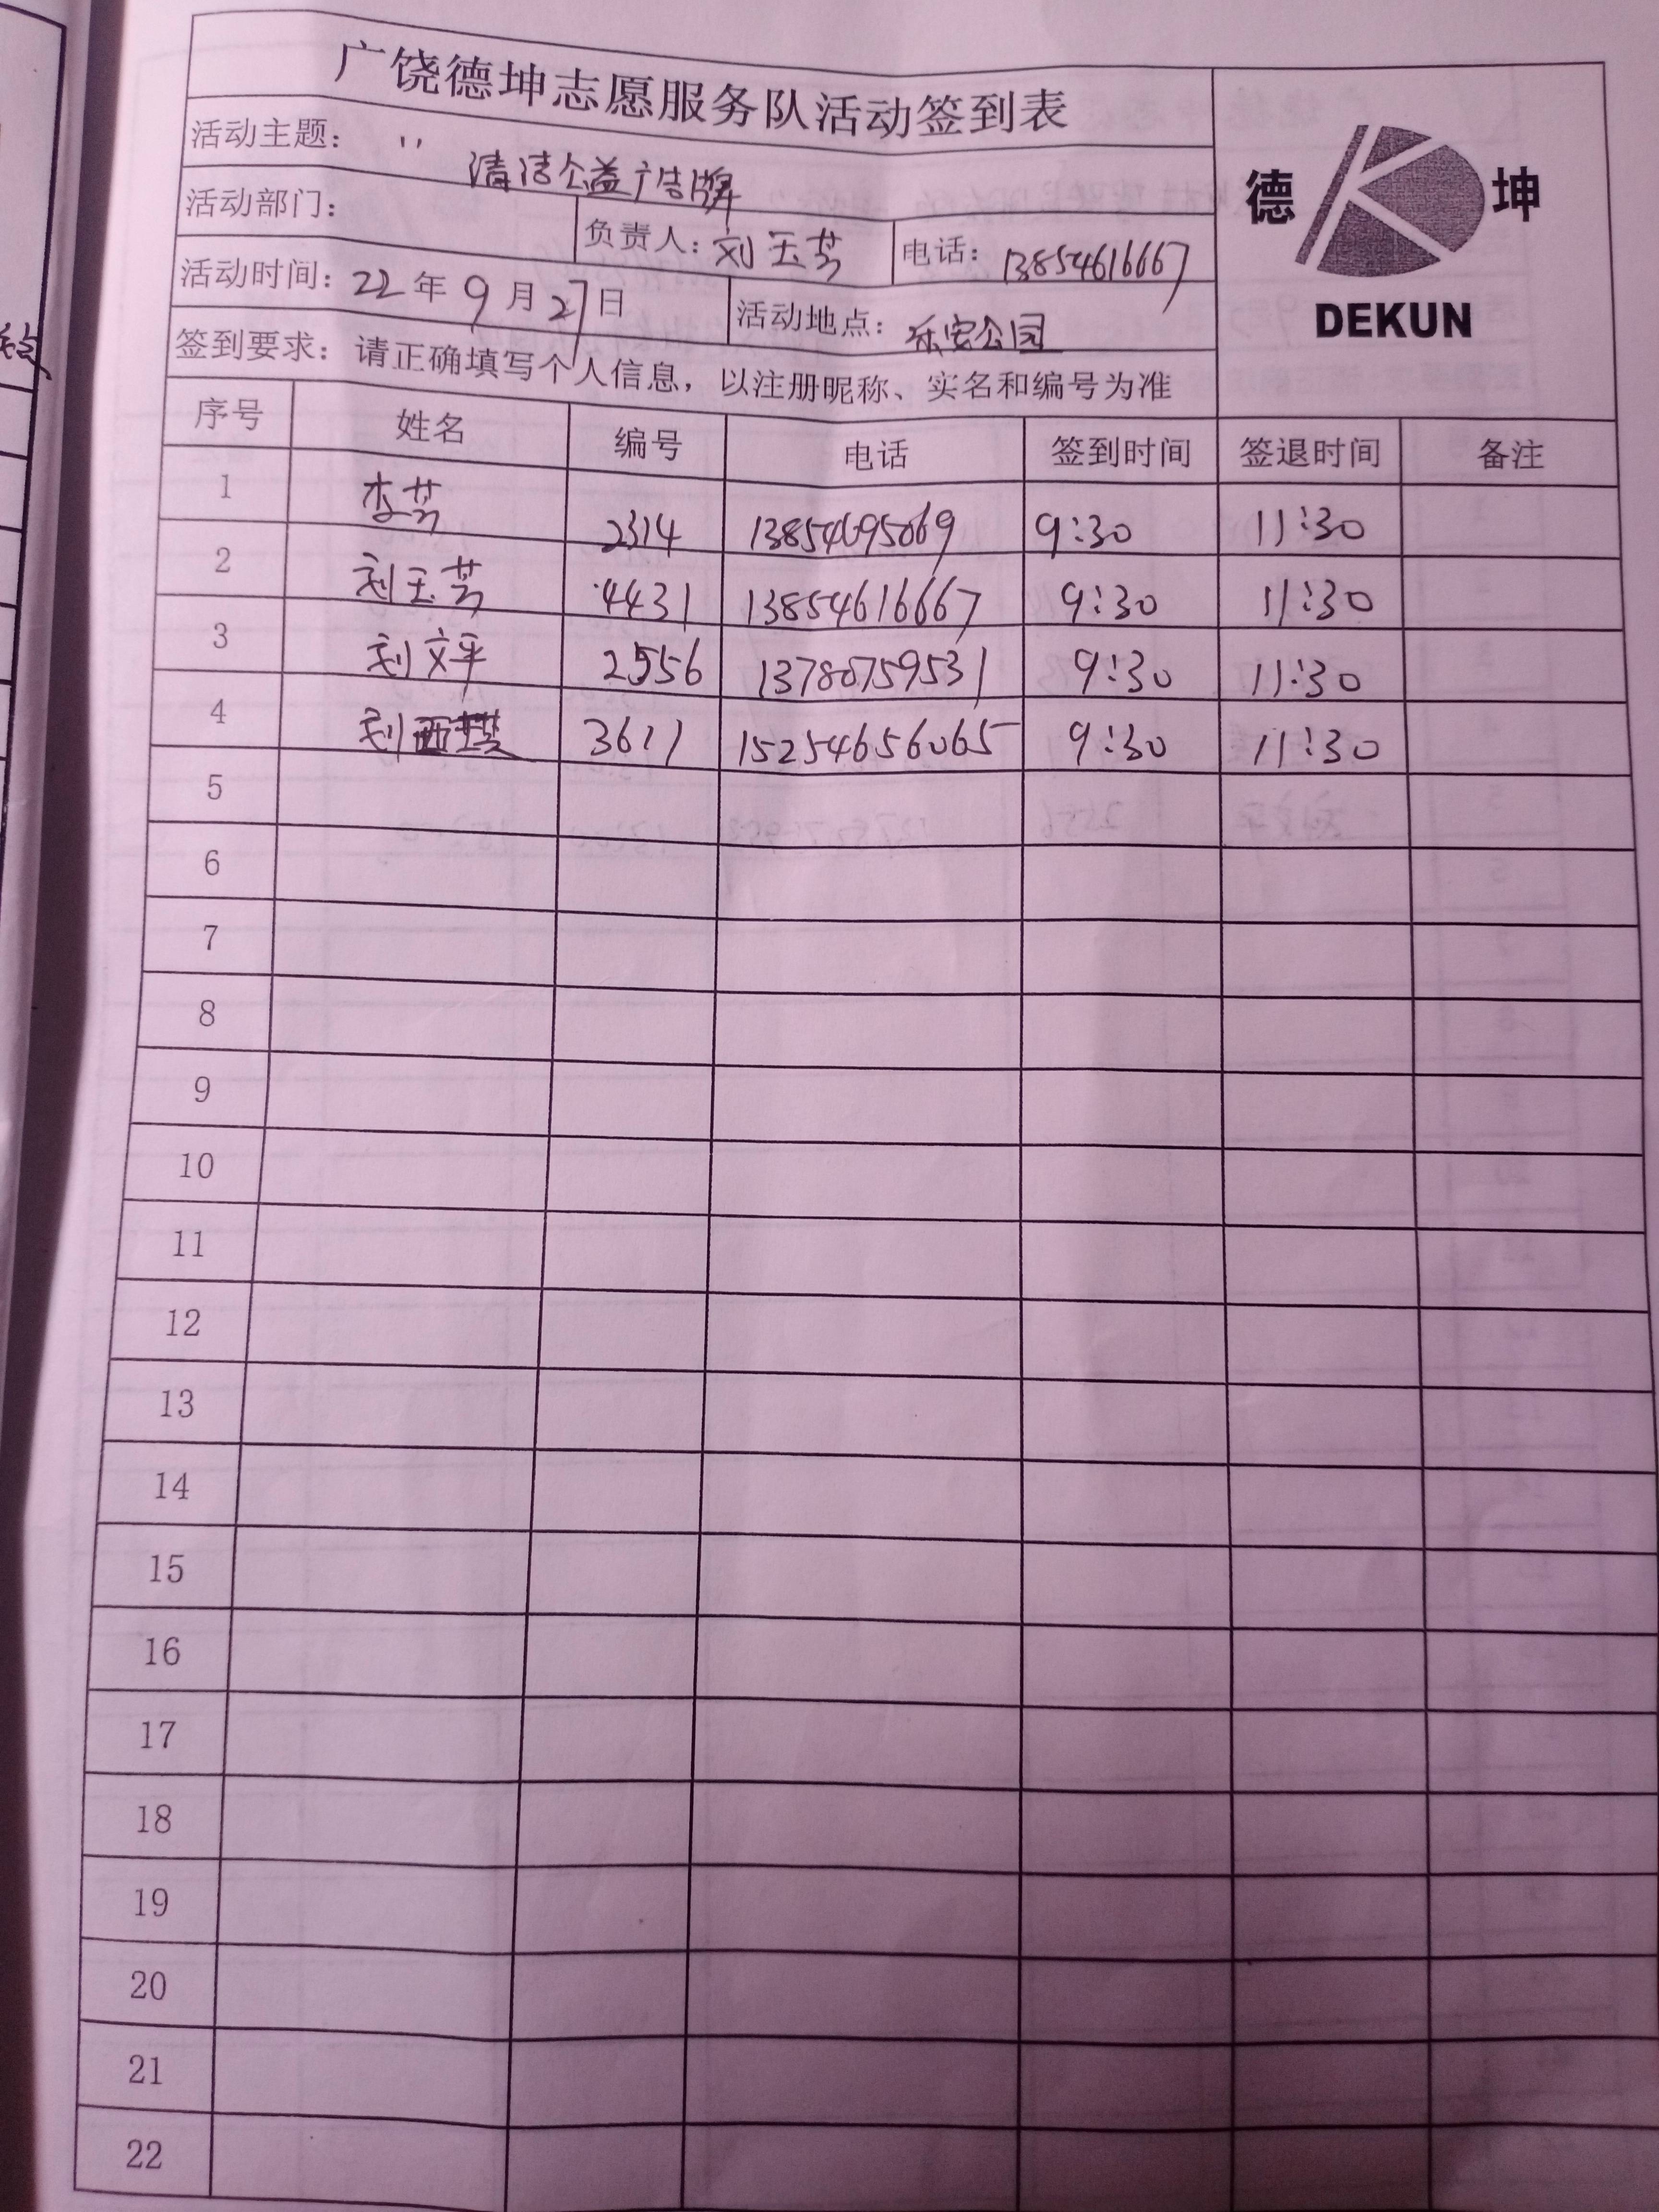 广饶德坤志愿服务队活动签到表
活动主题： " 清洁公益广告牌
德 坤
DEKUN
活动部门： 负责人：刘玉芳 电话：13854616667
活动时间：22年9月27日 活动地点：乐安公园
签到要求：请正确填写个人信息，以注册昵称、实名和编号为准
序号 姓名 编号 电话 签到时间 签退时间 备注
1 李芳 2314 13854695069 9:30 11:30
2 刘玉芳 4431 13854616667 9:30 11:30
3 刘文平 2556 13780759531 9:30 11:30
4 刘 3611 15254656065 9:30 11:30
5
6
7
8
9
10
11
12
13
14
15
16
17
18
19
20
21
22